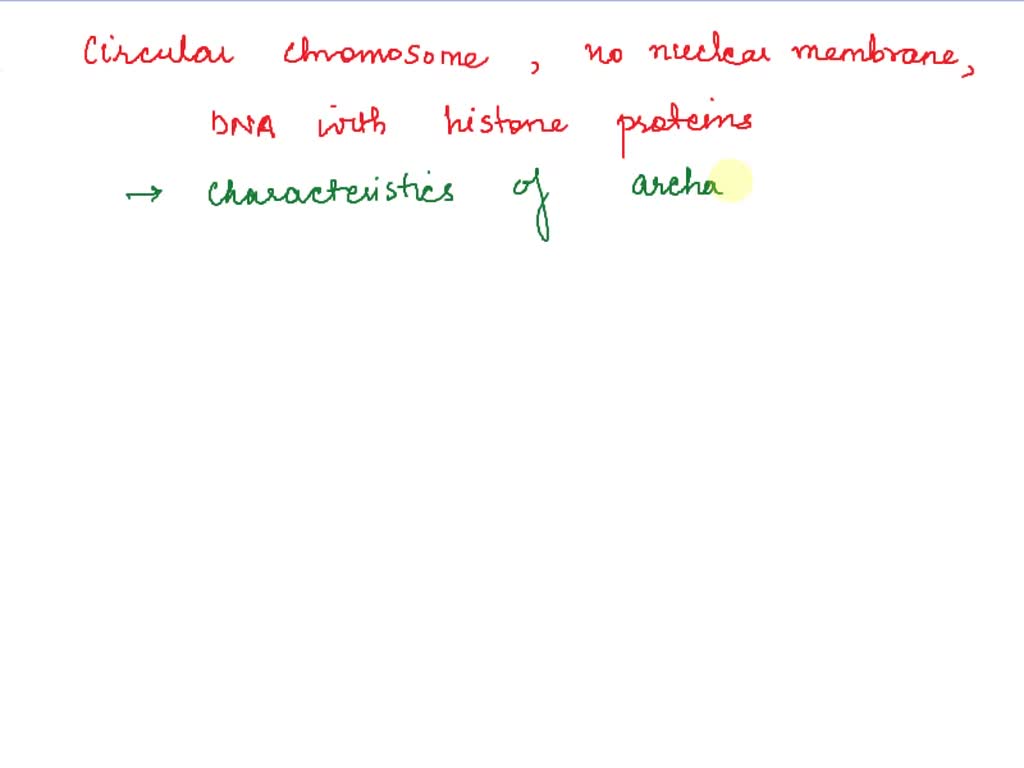 Circular chromosome, no nuclear membrane,
DNA with histone proteins
→ characteristics of archa